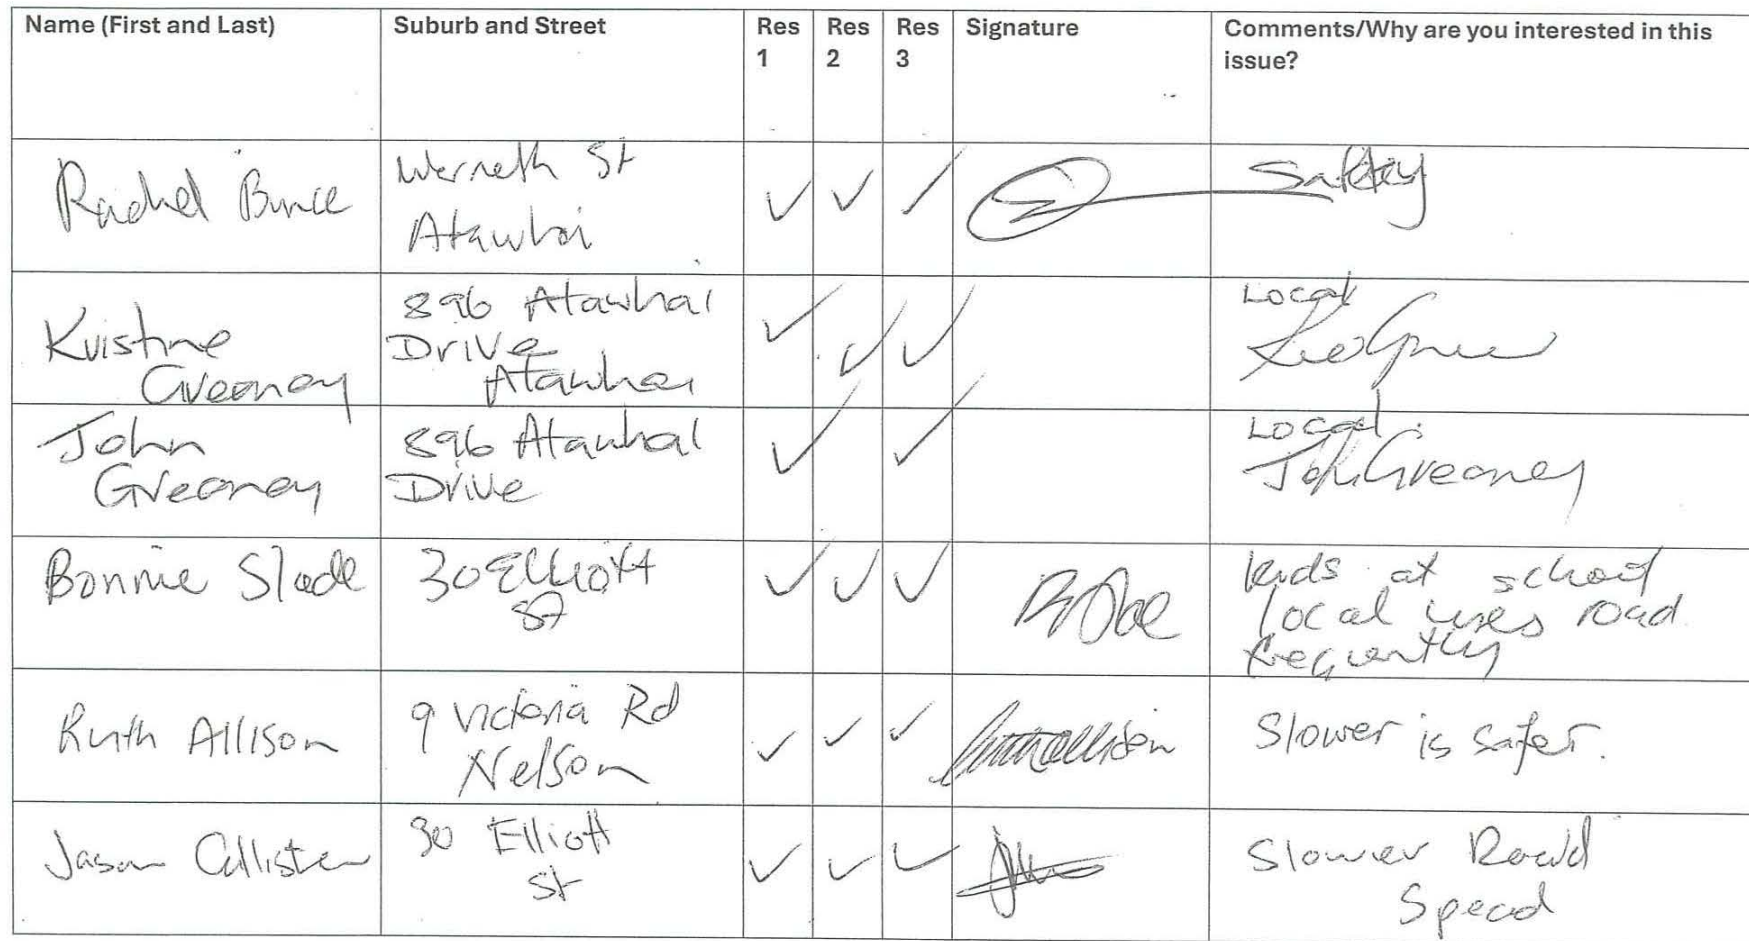 Name (First and Last) Suburb and Street Res 1 Res 2 Res 3 Signature Comments/Why are you interested in this issue?
Rachel Bunce Werneth St Atawhai ✓ ✓ ✓ Safety
Kristine Greeney 896 Atawhai Drive Atawhai ✓ ✓ ✓ Local
John Greeney 896 Atawhai Drive ✓ ✓ Local John Greeney
Bonnie Slade 30 Elliott St ✓ ✓ ✓ kids at school local uses road frequently
Ruth Allison 9 Victoria Rd Nelson ✓ ✓ ✓ Slower is safer.
Jason Callister 30 Elliott St ✓ ✓ ✓ Slower Road Speed